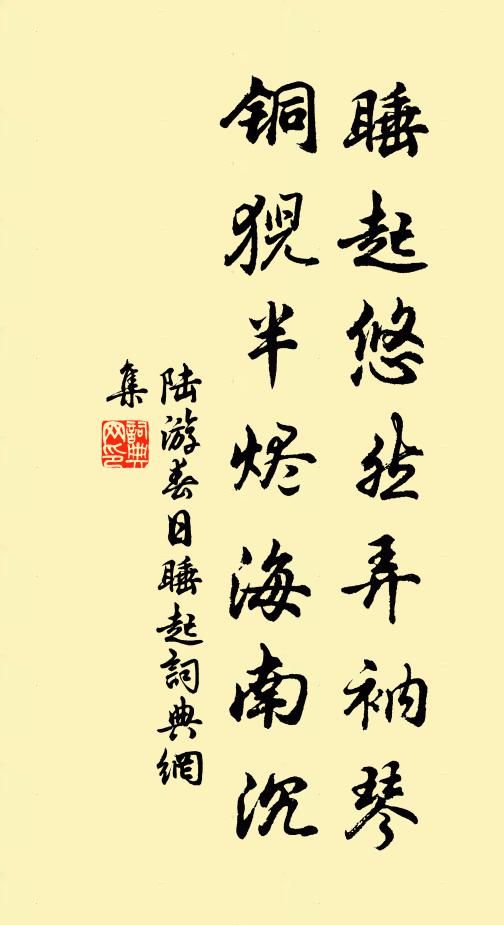 睡起悠然弄衲琴
铜猊半烬海南沉
陆游春日睡起詞典網
集
詞典
网印